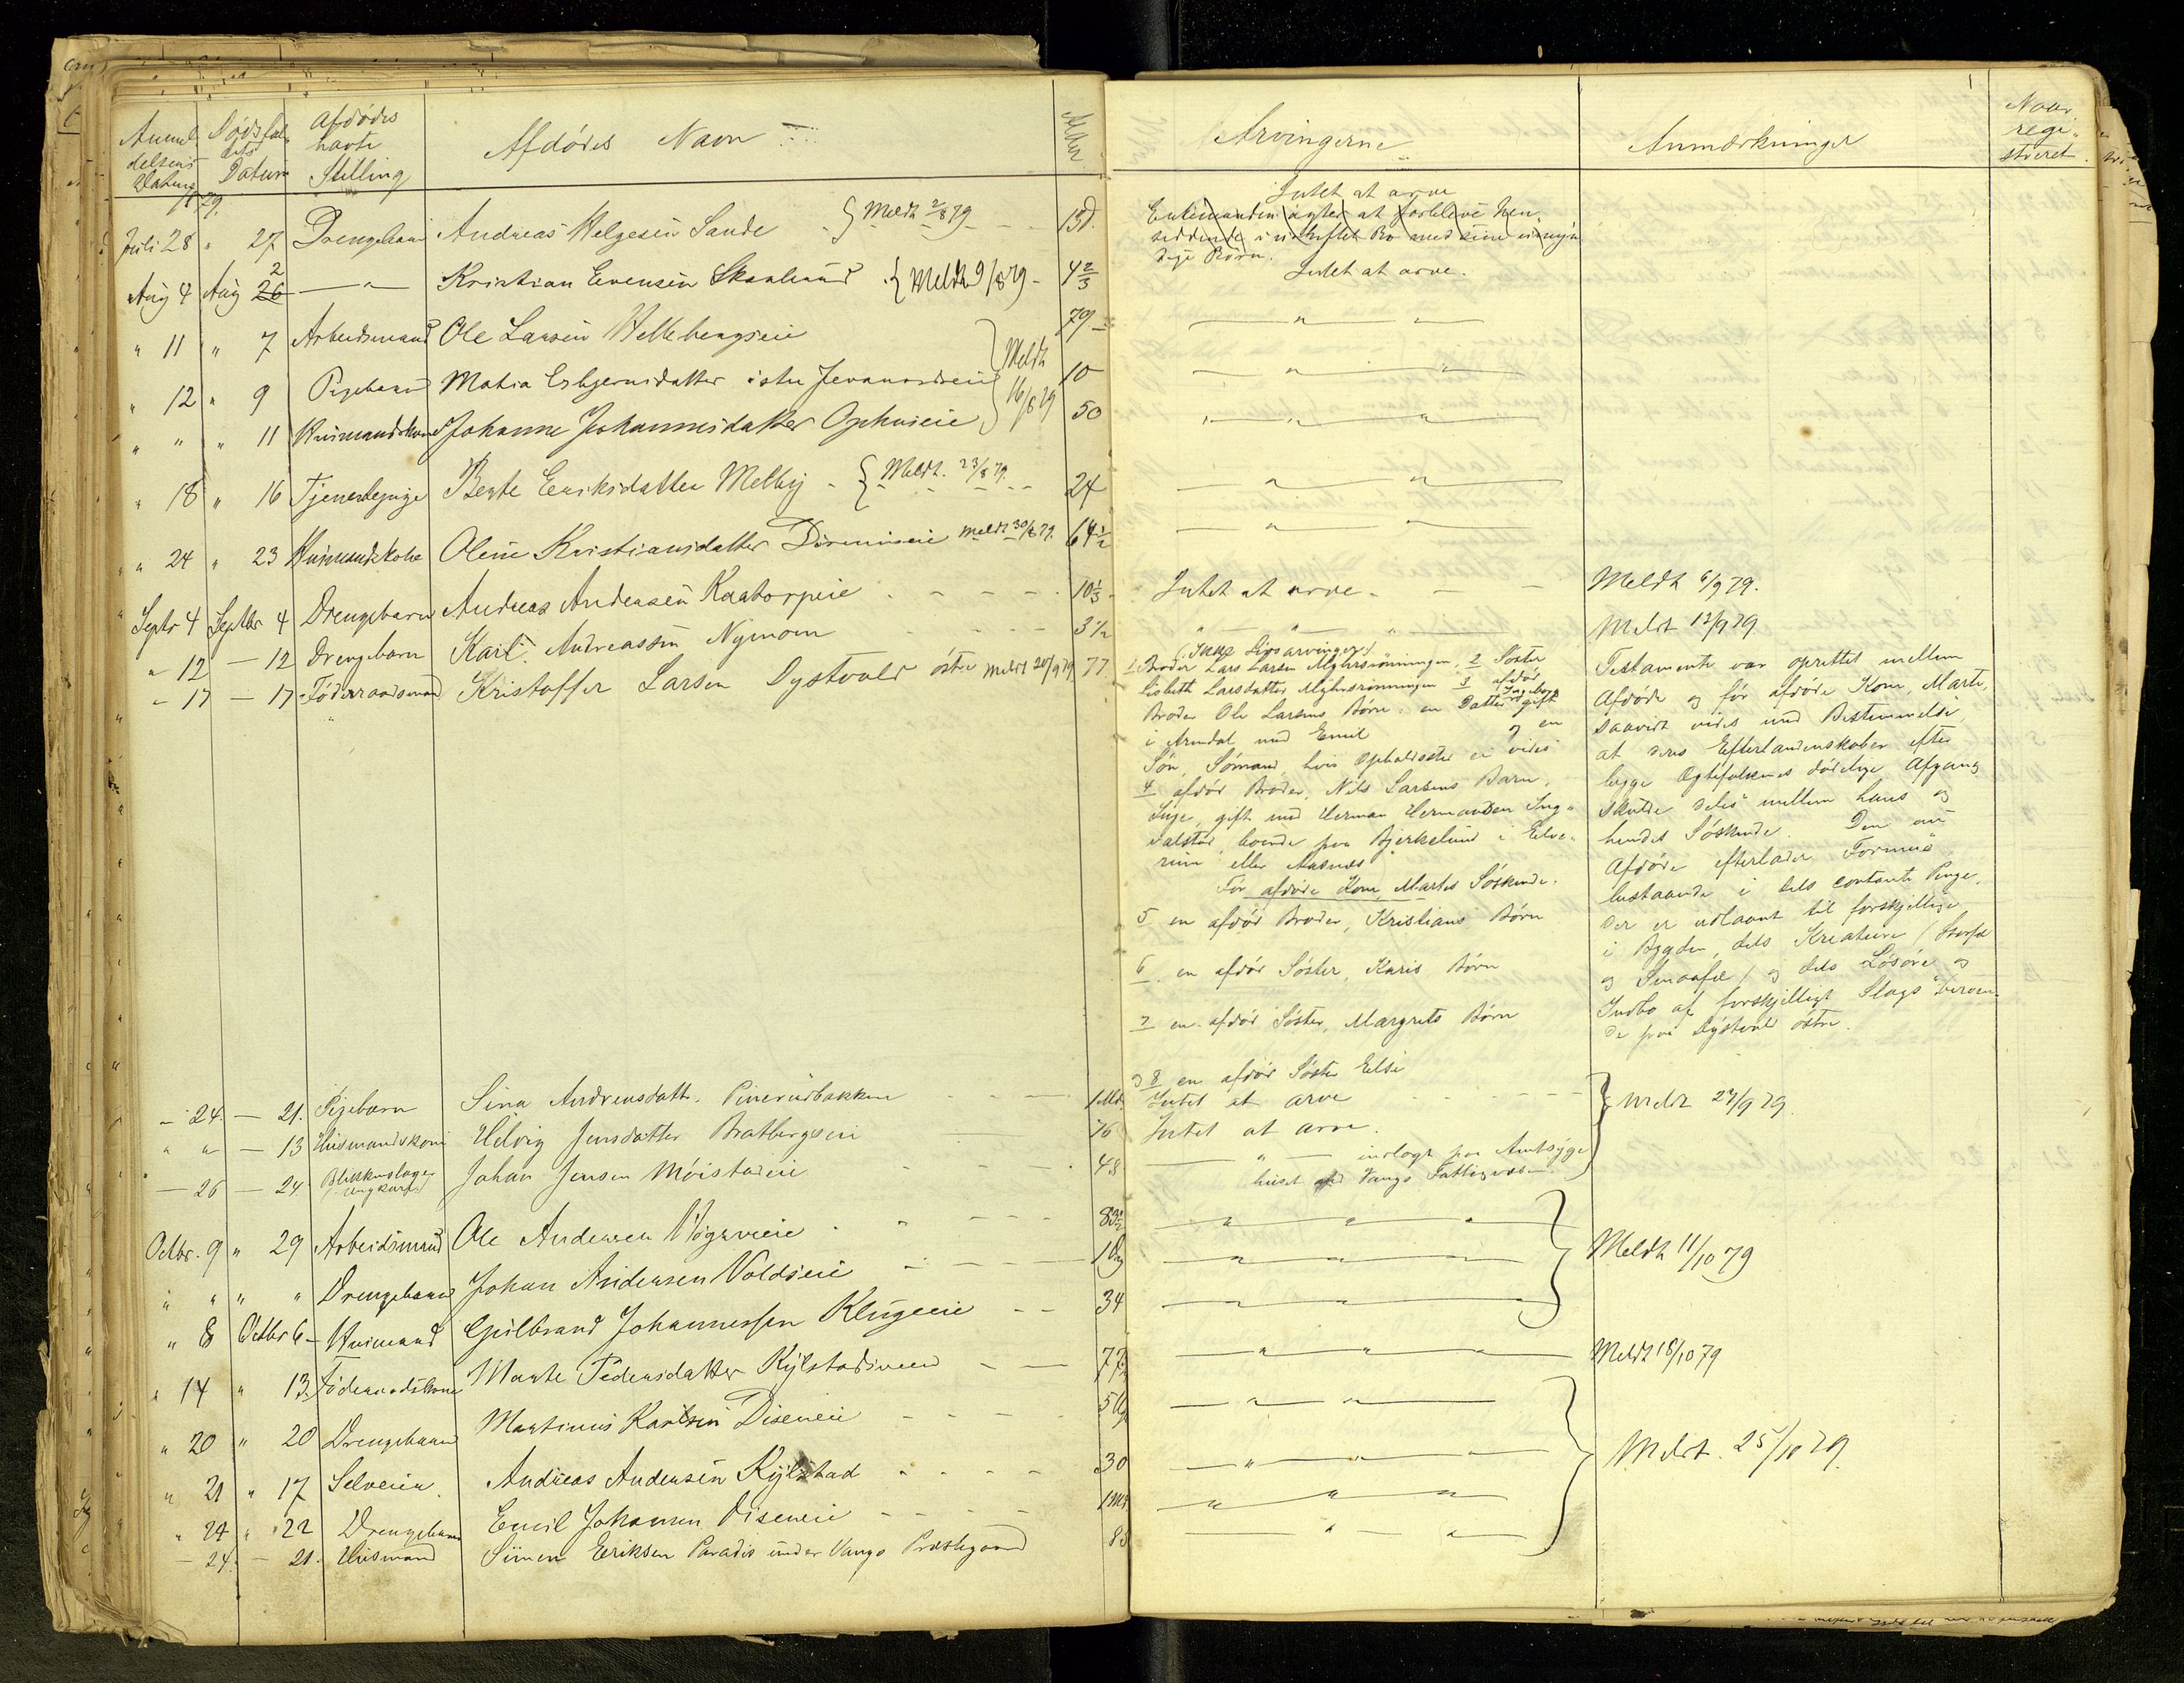 Anmel
delsens
Datum
Dødsfal
lets
Datum
Afdødes
havte
Stilling
Afdødes Navn
Alder
Arvingerne
Anmærkninger
Naar
regi-
streret
1879.
Juli 28 " 27 Drengebarn Andreas Helgesen Sande } Meldt 2/8 79 13d.
Intet at arve
Enkemanden agter at forblive hen-
siddende i uskiftet Bo med sine umyn
dige Børn.
Aug 4 Aug 26 2 — " — Kristian Evensen Skaalrud { Meldt 9/8 79 - 4 2/3 Intet at arve.
" 11 " 7 Arbeidsmand Ole Larsen Hellebergseie 79 — " — " —
" 12 " 9 Pigebarn Matia Esbjernsdatter 10 — " — " —
" " " 11 Husmandskone Johanne Johannesdatter Ophuseie 50 " — " — " —
} Meldt 16/8 79
" 18 " 16 Tjenestepige Berte Eriksdatter Melby - { Meldt. 23/8 79. 24 — " — " —
" 24 " 23 Husmandskone Oline Kristiansdatter Meldt 30/8 79. 64 1/2 — " — " —
Septr 4 Septbr 4 Drengebarn Andreas Andersen Kaatorpeie 10 1/3 Intet at arve - Meldt 6/9 79.
" 12 — 12 Drengebarn Karl Andreassen Nymoen 3 1/2 " — " — " — Meldt 13/9 79
" 17 — 17 Føderaadsmand Kristoffer Larsen Dystvold østre Meldt 20/9 79 77
(Inge Livsarvinger)
1 Broder Lars Larsen Myhrsrønningen, 2 Søster
Lisbeth Larsdatter Myhrsrønningen 3 afdød
Broder Ole Larsens Børn: en Datter Ingeborg gift
i Arendal med Emil og en
Søn, Sømand, hvis Opholdssted ei vides
4 afdød Broder, Nils Larsens Barn,
Inge, gift med Herman Hermandsen Ing-
valstad, boende paa Bjerkelund i Elve-
rum eller Aasnæs
Før afdøde Kone, Martes Søskende.
5 en afdød Broder, Kristians Børn
6 en afdød Søster, Karis Børn
7 en afdød Søster, Margrets Børn
og 8 en afdød Søster Eelsi
Testamente var oprettet mellem
Afdøde og før afdøde Kone, Marte,
saavidt vides med Bestemmelse,
at deres Efterladenskaber efter
begge Ægtefolkenes dødelige Afgang
skulde deles mellem hans og
hendes Søskende. Den nu
Afdøde efterlader Formue,
bestaaende i dels contante Penge,
der er udlaant til forskjellige
i Bygden, dels Kreature / Storfæ
og Smaafæ / og dels Løsøre og
Indbo af forskjelligt Slags beroen-
de paa Dystvold østre.
- 24 — 21. Pigebarn Sina Andreasdatt. Pinerudbakken 1 Md. Intet at arve
" " — 13 Husmandskone Helvig Jensdatter Bratbergseie 76 Intet at arve.
— 26 — 24 Blikkenslager ungkarl Johan Jensen Møistadeie 48 — " — indlagt paa Amtssyge
huset af Vangs Fattigvæsen
} Meldt 27/9 79.
Octbr. 9 " 29 Arbeidsmand Ole Andersen 83 1/2 — " — " — " —
" " " " Drengebarn Johan Andersen Voldseie — " — " — " —
" 8 Octbr 6 - Husmand Gulbrand Johannessen Klugeeie 34 — " — " —
} Meldt 11/10 79
" 14 " 13 Føderaadskone Marte Pedersdatter Kylstadsveen 77 — " — " — " — Meldt 18/10 79
" 20 " 20 Drengebarn Martinus Karlsen Diseneie — " — " —
" 21 " 17 Selveier. Andreas Andersen Kylstad 30 — " — " —
" 24 " 22 Drengebarn Emil Johansen Diseneie 1 Md — " — " — " —
— 24. — 21. Husmand Simen Eriksen Paradis under Vangs Præstegaard 83 — " — " —
} Meldt. 25/10 79